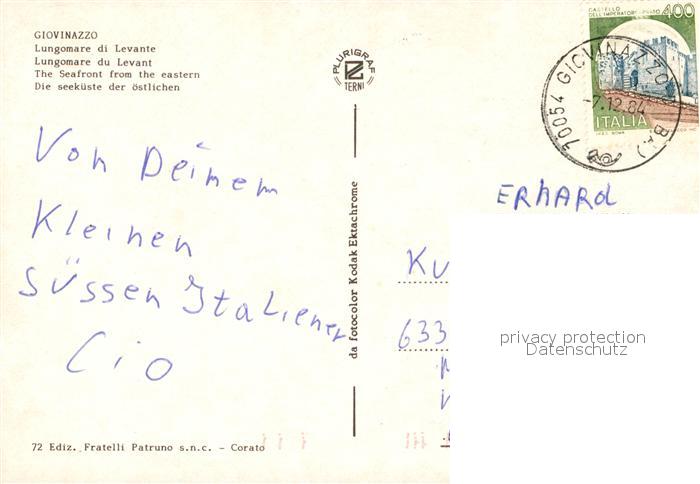 GIOVINAZZO
Lungomare di Levante
Lungomare du Levant
The Seafront from the eastern
Die seeküste der östlichen
PLURIGRAF
TERNI
CASTELLO
DELL'IMPERATORE - PRATO 400
ITALIA
70054 GIOVINAZZO (BA)
-7.12.84
Von Deinem
Kleinen
Süssen Italiener
Cio
da fotocolor Kodak Ektachrome
ERHARd
KU
633
privacy protection
Datenschutz
72 Ediz. Fratelli Patruno s.n.c. - Corato